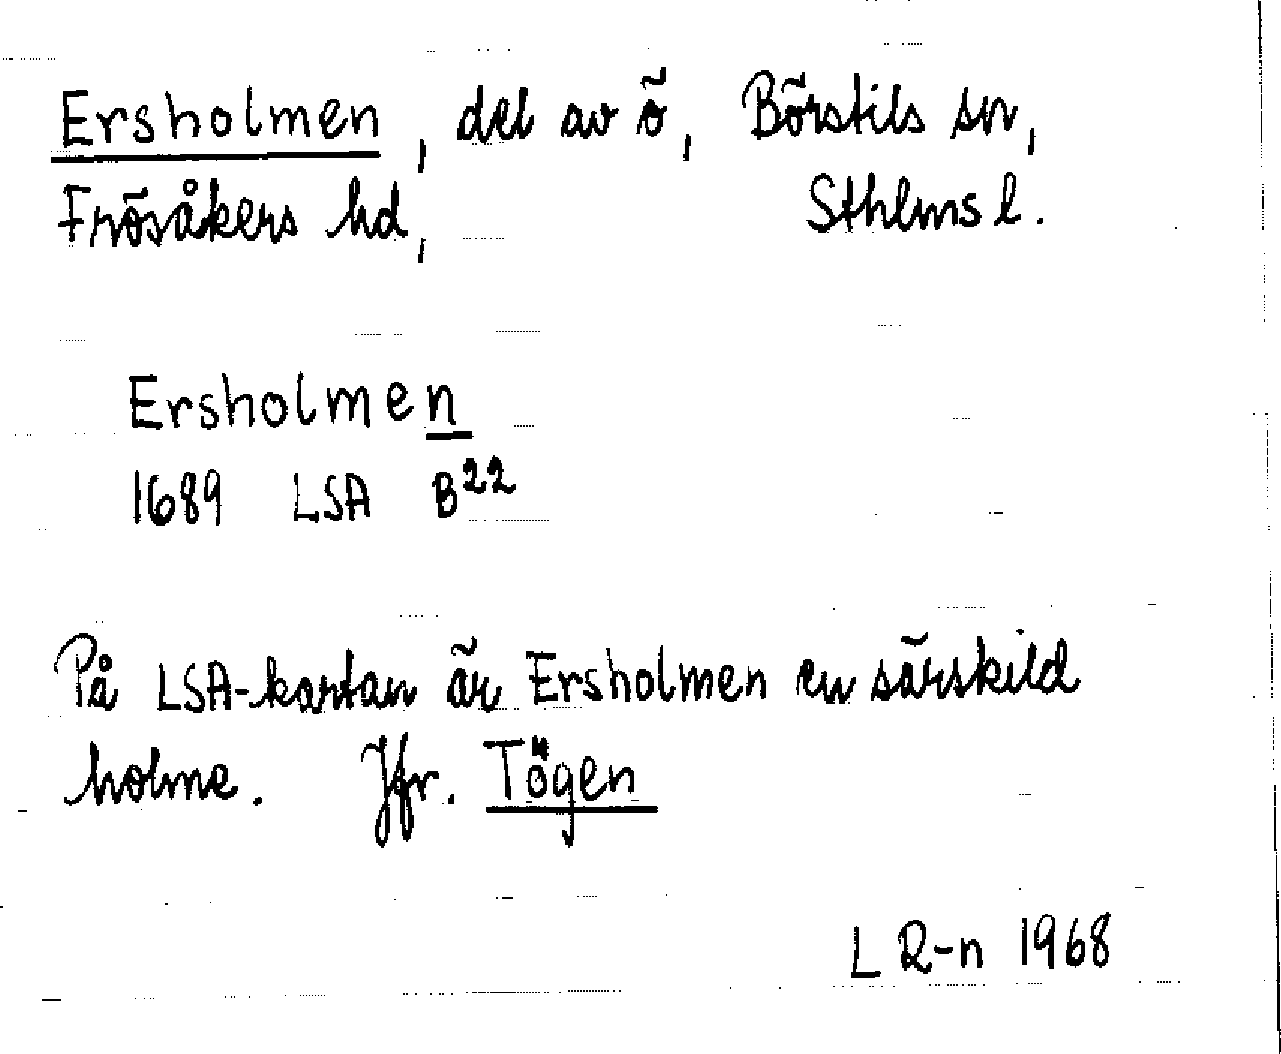 Ersholmen, del av ö, Börstils sn,
Frösåkers hd, Sthlms l.
Ersholmen
1689 LSA B22
På LSA-kartan är Ersholmen en särskild
holme. Jfr. Tögen
L R-n 1968